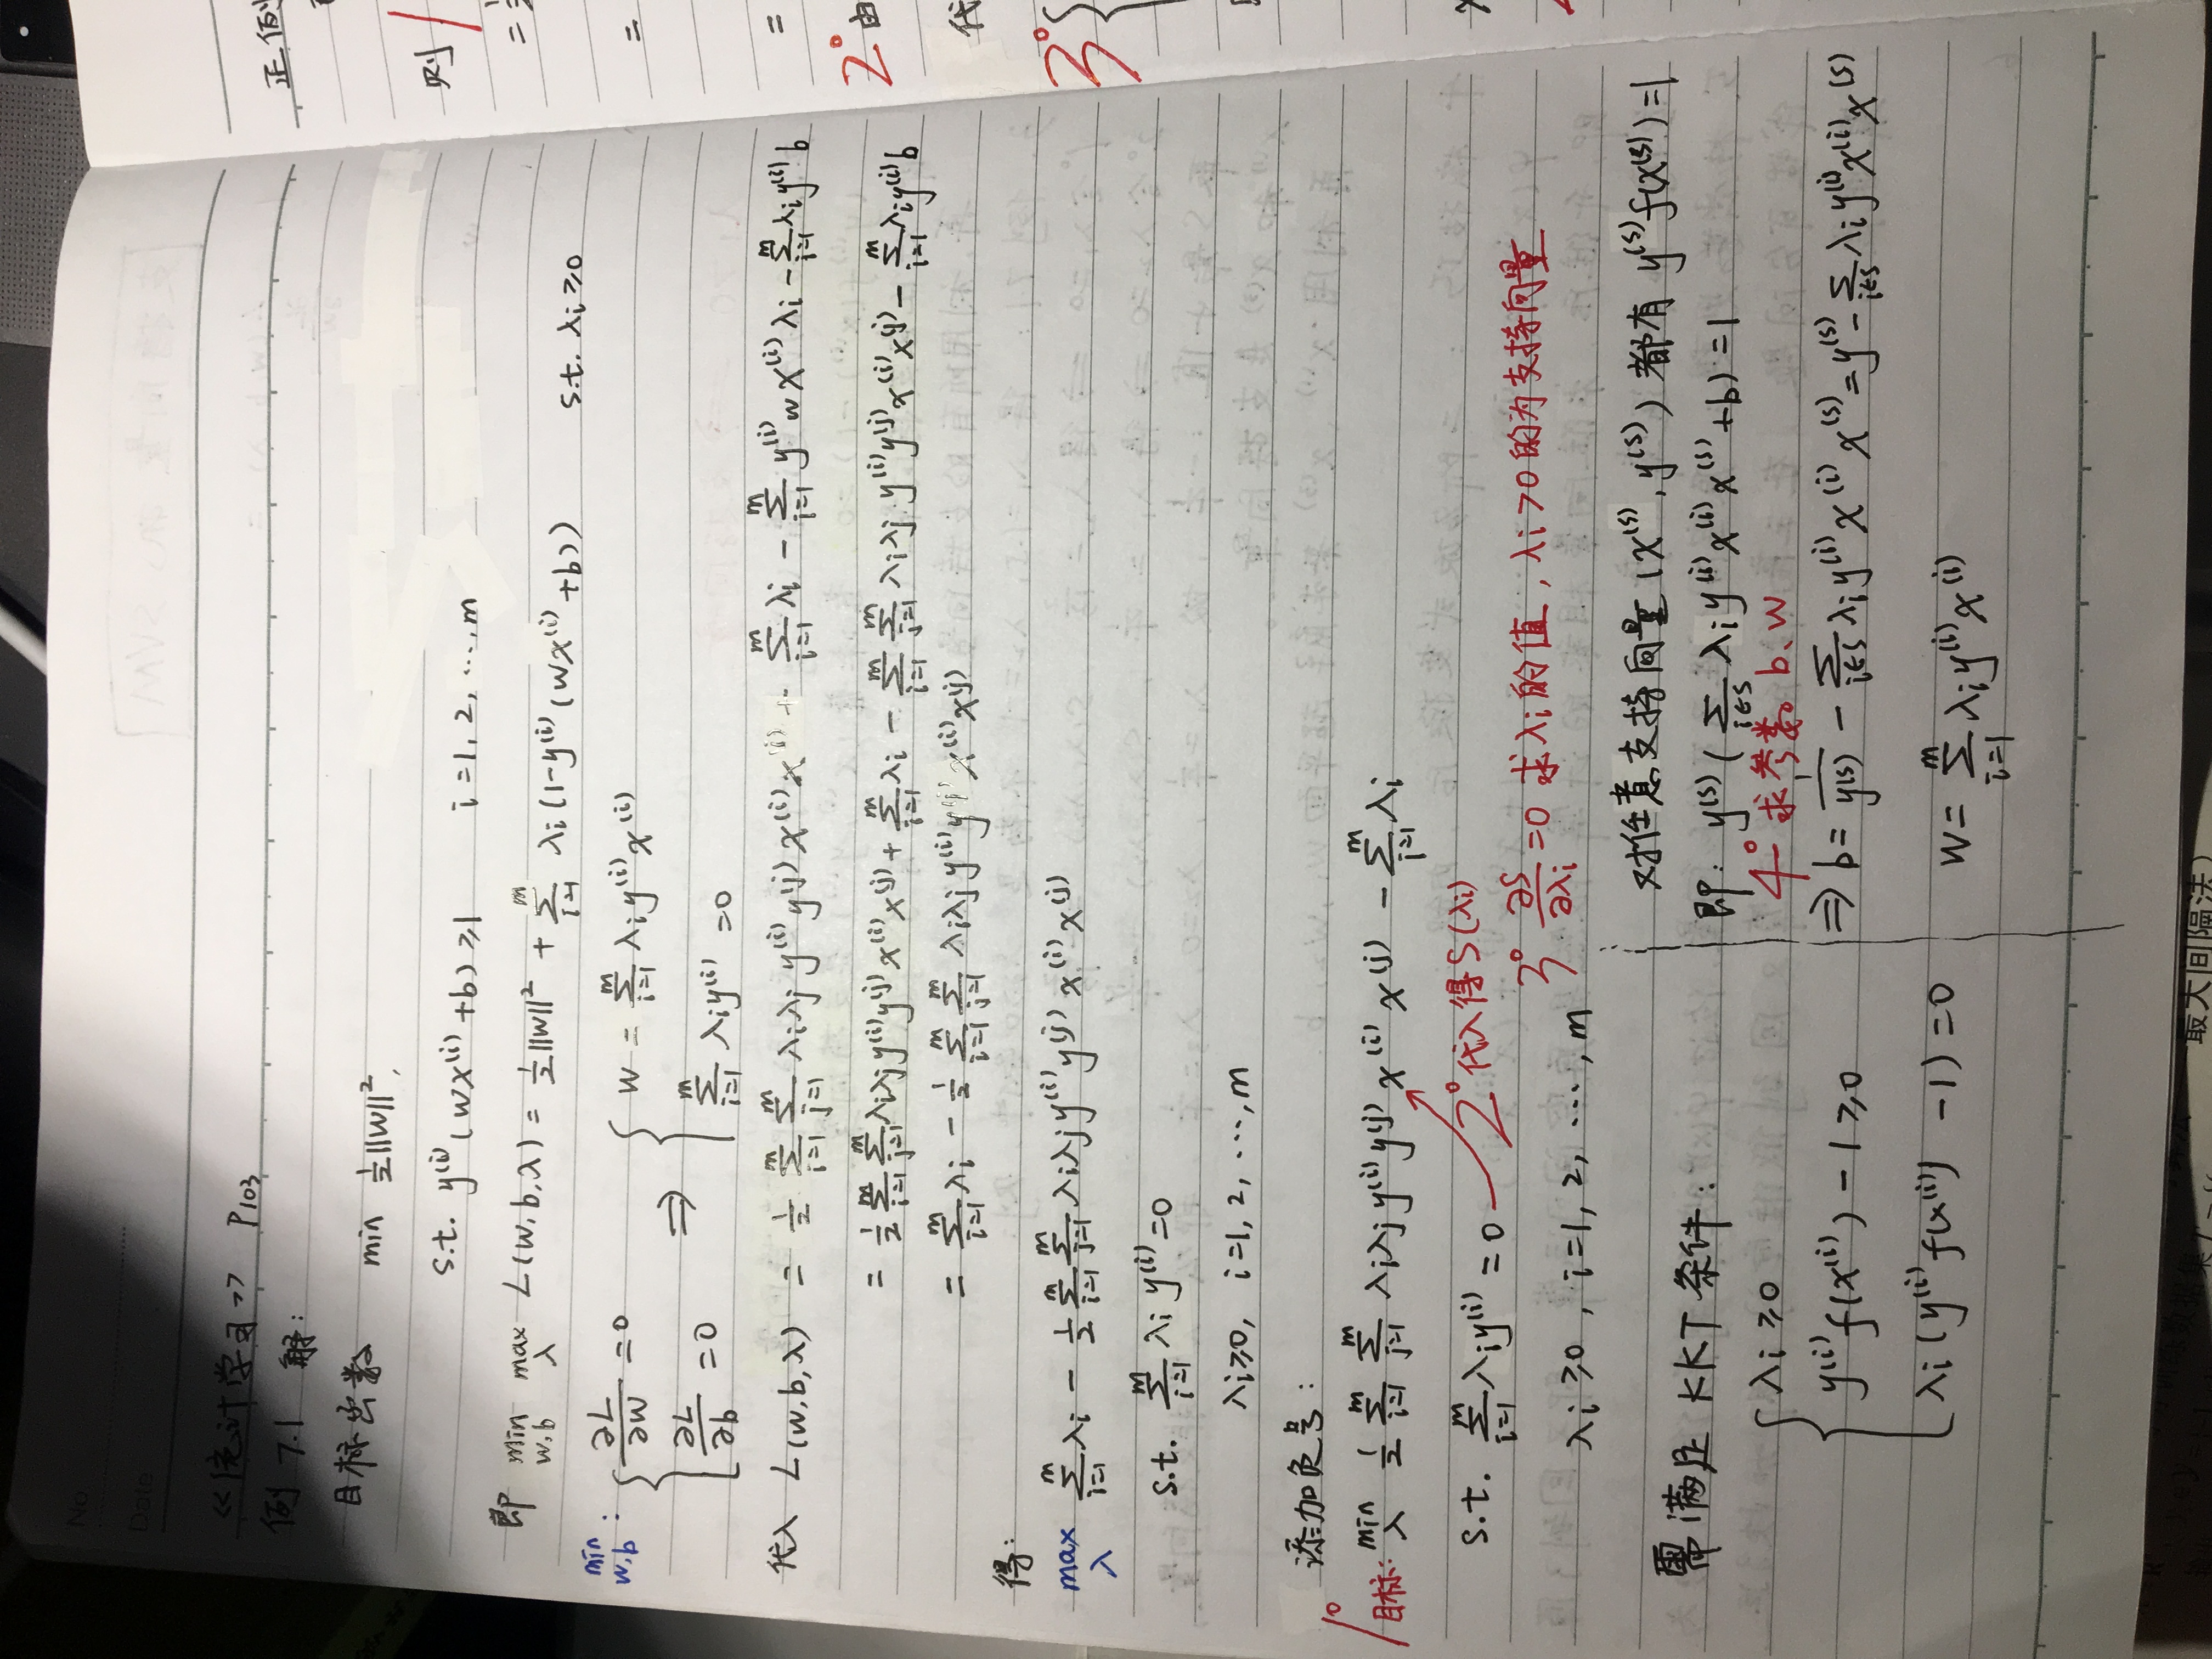 No
Date
《统计学习》 P103
例 7.1 解:
目标函数 min ½||W||²,
s.t. y⁽ⁱ⁾(wx⁽ⁱ⁾+b)≥1 i=1, 2, …, m
即 min_{w,b} max_λ L(w,b,λ) = ½||w||² + Σ_{i=1}^m λi(1-y⁽ⁱ⁾(wx⁽ⁱ⁾+b)) s.t. λi≥0
min_{w,b}: { ∂L/∂w =0 ⇒ { w = Σ_{i=1}^m λi y⁽ⁱ⁾x⁽ⁱ⁾
∂L/∂b =0 Σ_{i=1}^m λi y⁽ⁱ⁾ =0
代入 L(w,b,λ) = ½ Σ_{i=1}^m Σ_{j=1}^m λiλj y⁽ⁱ⁾y⁽ʲ⁾x⁽ⁱ⁾x⁽ʲ⁾ + Σ_{i=1}^m λi - Σ_{i=1}^m y⁽ⁱ⁾wx⁽ⁱ⁾λi - Σ_{i=1}^m λi y⁽ⁱ⁾b
= ½ Σ_{i=1}^m Σ_{j=1}^m λiλj y⁽ⁱ⁾y⁽ʲ⁾x⁽ⁱ⁾x⁽ʲ⁾ + Σ_{i=1}^m λi - Σ_{i=1}^m Σ_{j=1}^m λiλj y⁽ⁱ⁾y⁽ʲ⁾x⁽ⁱ⁾x⁽ʲ⁾ - Σ_{i=1}^m λi y⁽ⁱ⁾b
= Σ_{i=1}^m λi - ½ Σ_{i=1}^m Σ_{j=1}^m λiλj y⁽ⁱ⁾y⁽ʲ⁾x⁽ⁱ⁾x⁽ʲ⁾
得:
max_λ Σ_{i=1}^m λi - ½ Σ_{i=1}^m Σ_{j=1}^m λiλj y⁽ⁱ⁾y⁽ʲ⁾x⁽ⁱ⁾x⁽ʲ⁾
s.t. Σ_{i=1}^m λi y⁽ⁱ⁾=0
λi≥0, i=1, 2, …, m
添加负号:
1° 目标: min_λ ½ Σ_{i=1}^m Σ_{j=1}^m λiλj y⁽ⁱ⁾y⁽ʲ⁾x⁽ⁱ⁾x⁽ʲ⁾ - Σ_{i=1}^m λi
s.t. Σ_{i=1}^m λi y⁽ⁱ⁾ =0 2° 代入得S(λi)
3° ∂S/∂λi =0 求λi的值, λi>0的为支持向量
λi≥0, i=1, 2, …, m
需满足 KKT 条件:
{ λi≥0
y⁽ⁱ⁾f(x⁽ⁱ⁾) -1≥0
λi(y⁽ⁱ⁾f(x⁽ⁱ⁾) -1)=0
对任意支持向量(x⁽ˢ⁾, y⁽ˢ⁾) 都有 y⁽ˢ⁾f(x⁽ˢ⁾)=1
即: y⁽ˢ⁾(Σ_{i∈S} λi y⁽ⁱ⁾x⁽ⁱ⁾x⁽ˢ⁾+b)=1
4° 求参数 b、w
⇒ b= 1/y⁽ˢ⁾ - Σ_{i∈S} λi y⁽ⁱ⁾x⁽ⁱ⁾x⁽ˢ⁾ = y⁽ˢ⁾ - Σ_{i∈S} λi y⁽ⁱ⁾x⁽ⁱ⁾x⁽ˢ⁾
w= Σ_{i=1}^m λi y⁽ⁱ⁾x⁽ⁱ⁾
正例
则
=
=
=
2° 由
代
3° {
训练数据集T
最大间隔法)